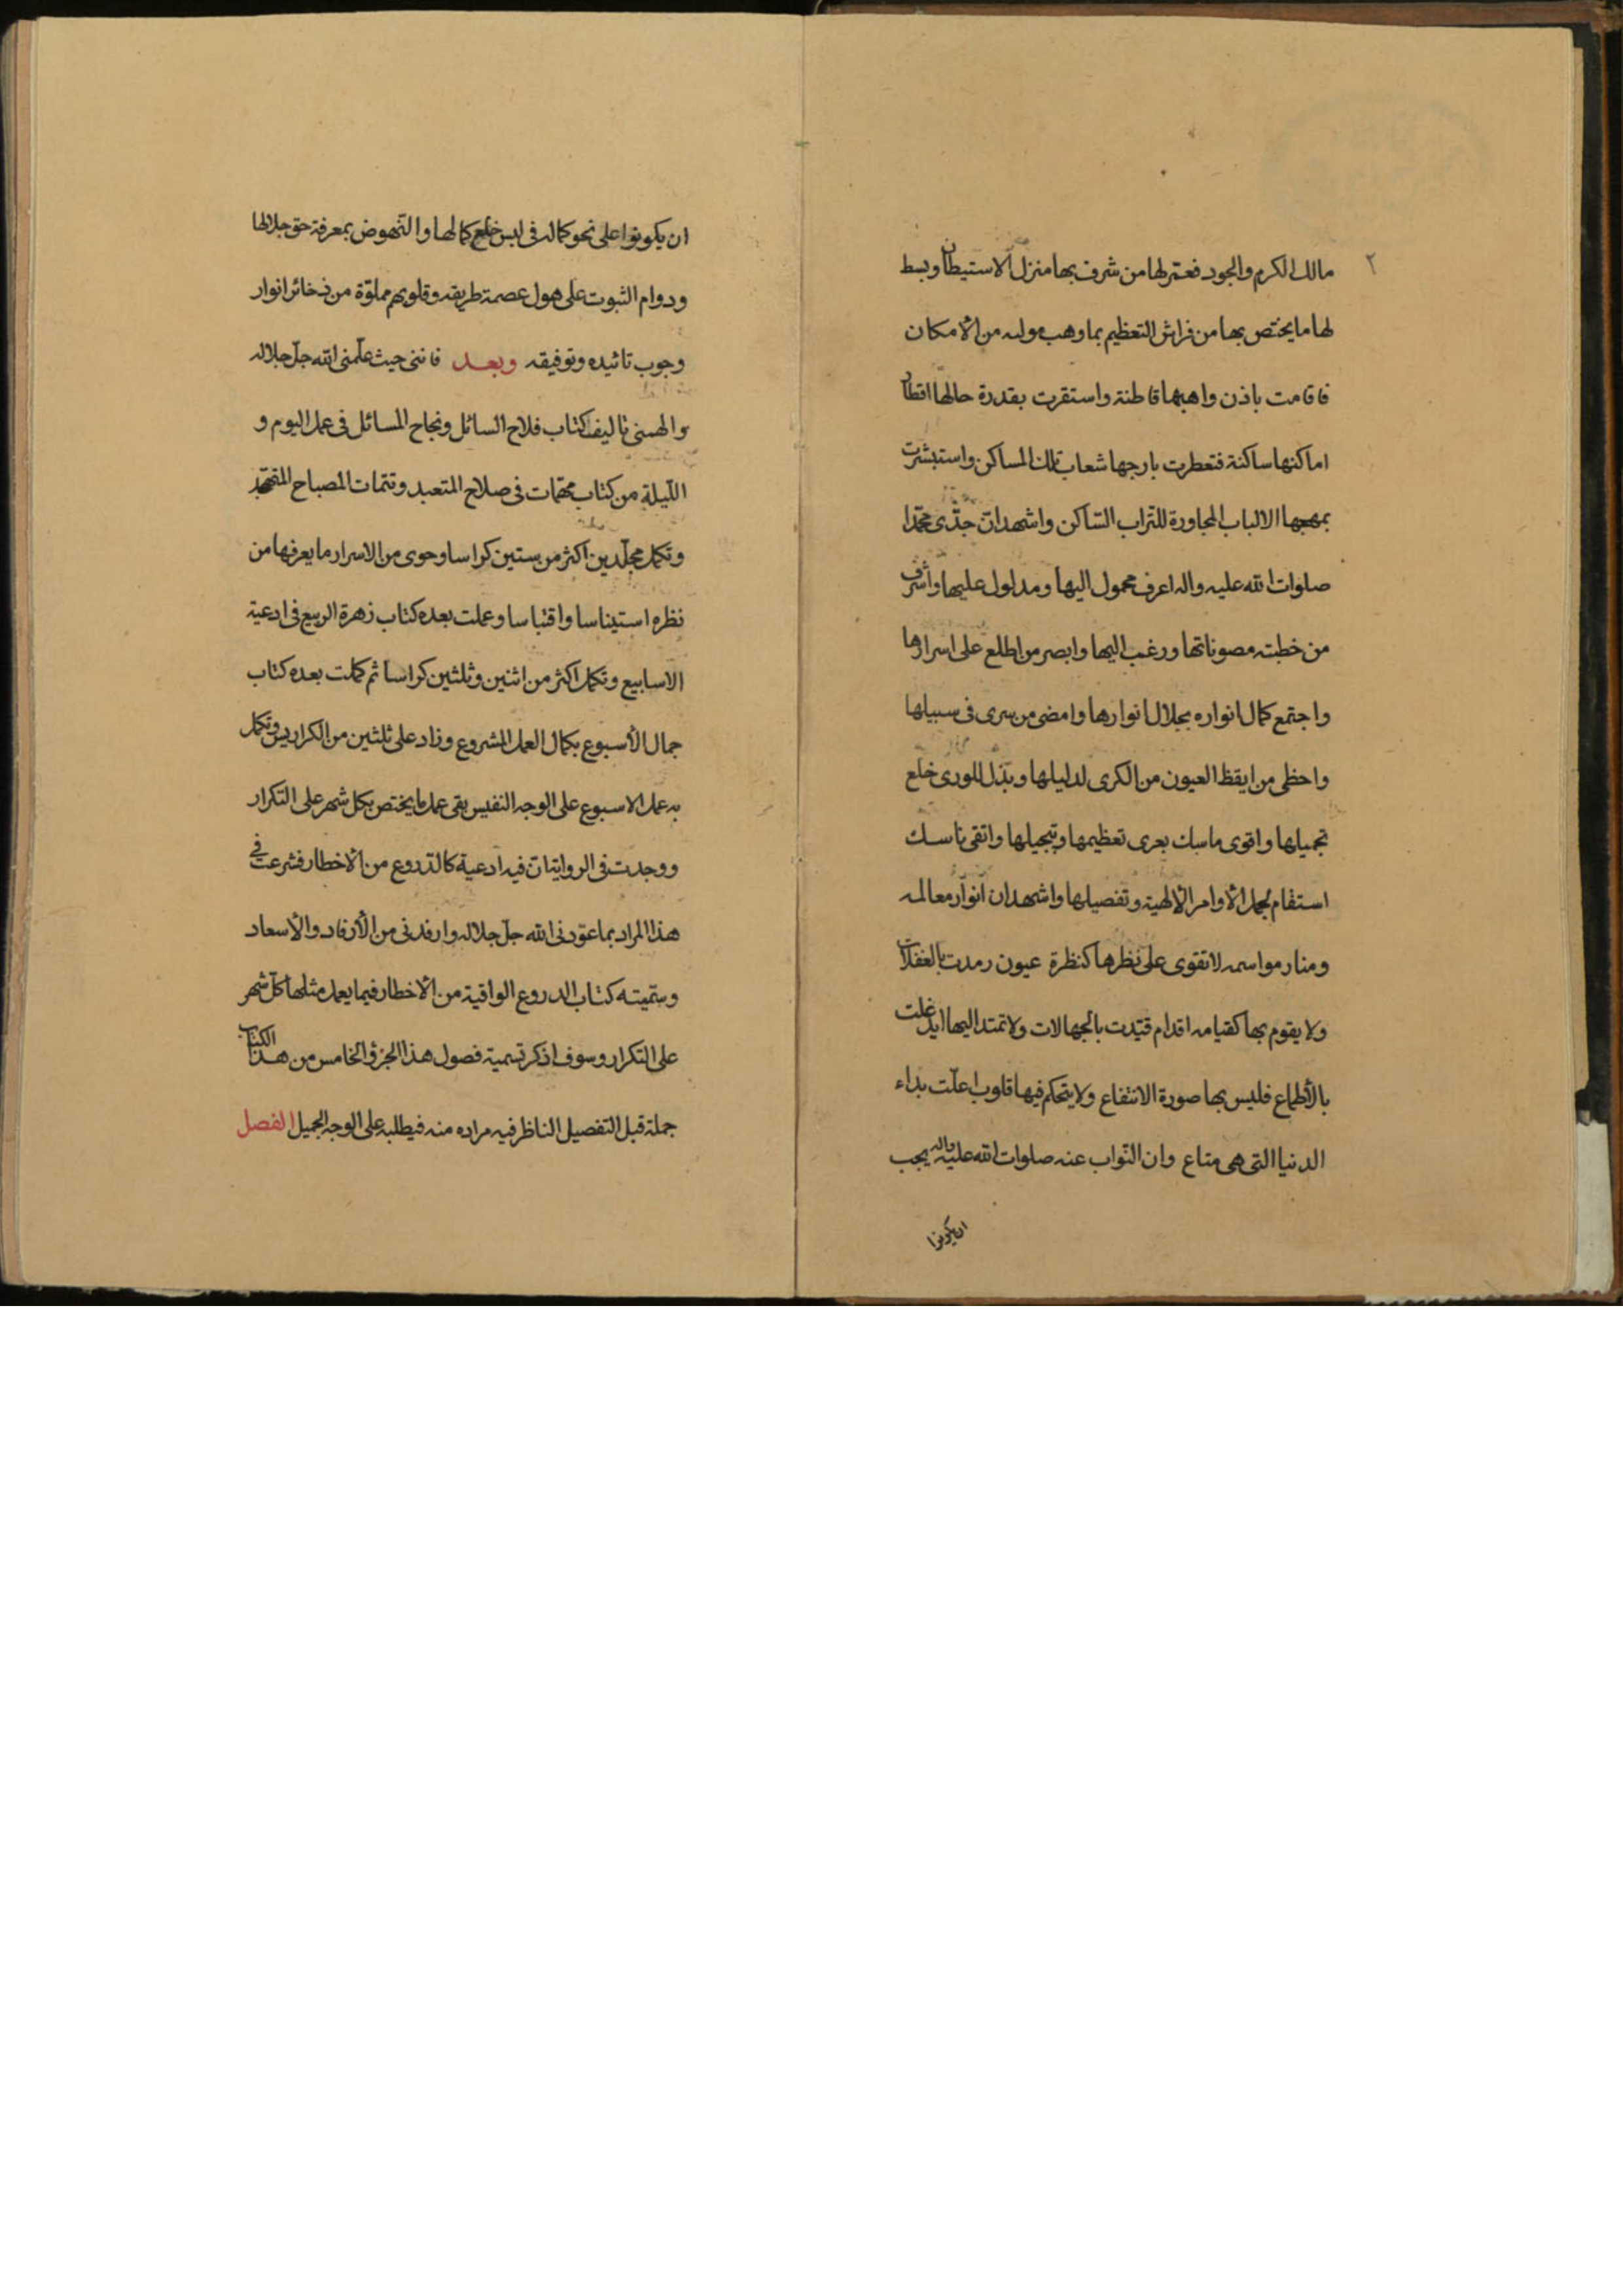 ٢
مالك الكرم والجود فعمّر لها من شرف بها منزل الاستيطان وبسط
لها ما يختص بها من فراش التعظيم بما وهب مولىه من الأمكان
فاقامت باذن واهبها قاطنة واستقرت بقدرة حالها اقطار
اماكنها ساكنة فتعطرت بارجها شعاب تلك المساكن واستبشرت
بمهجها الالباب المجاورة للتراب الساكن واشهد ان جدّى محمّدا
صلوات الله عليه واله اعرف محمول اليها ومدلول عليها واشرف
من خطبته مصوناتها ورغب اليها وابصر من اطلع على اسرارها
واجتمع كمال انواره بجلال انوارها وامضى من سرى فى سبيلها
واحظى من ايقظ العيون من الكرى لدليلها وبذل للورى خلع
تجميلها واقوى ماسك بعرى تعظيمها وتبجيلها واتقى ناسك
استقام لمجمل الأوامر الإلهية وتفصيلها واشهد ان انوار معالمه
ومنار مواسمه لا تقوى على نظرها كنظرة عيون رمدت بالغفلات
ولا يقوم بها كقيامه اقدام قيّدت بالجهالات ولا تمتد اليها ايد غلت
بالأطماع فليس بها صورة الانتفاع ولا يتحكم فيها قلوب اعلّت بداء
الدنيا التى هى متاع وان النواب عنه صلوات الله عليه واله يجب
ان يكونوا
ان يكونوا على نحو كماله فى لبس خلع كمالها والنهوض بمعرفة حق جلالها
ودوام الثبوت على هول عصمة طريقه وقلوبهم مملوّة من ذخائر انوار
وجوب تائيده وتوفيقه وبعد فاننى حيث علّمنى الله جلّ جلاله
والهمنى تاليف كتاب فلاح السائل ونجاح المسائل فى عمل اليوم و
الليلة من كتاب مهمّات فى صلاح المتعبد وتتمات لمصباح المتهجد
وتكمل مجلّدين اكثر من ستين كراسا وحوى من الاسرار ما يعرفها من
نظره استيناسا واقتباسا وعملت بعده كتاب زهرة الربيع فى ادعية
الاسابيع وتكمل اكثر من اثنين وثلثين كراسا ثم كملت بعده كتاب
جمال الأسبوع بكمال العمل المشروع وزاد على ثلثين من الكراريس وتكمل
به عمل الاسبوع على الوجه النفيس بقى عمل ما يختص بكل شهر على التكرار
ووجدت فى الروايات ان فيه ادعية كالدروع من الأخطار فشرعت فى
هذا المراد بما عوّدنى الله جلّ جلاله وارفدنى من الأرفاد والأسعاد
وسمّيته كتاب الدروع الواقية من الأخطار فيما يعمل مثلها كلّ شهر
على التكرار وسوف اذكر تسمية فصول هذا الجزؤ الخامس من هذا الكتاب
جملة قبل التفصيل الناظر فيه مراده منه فيطلبه على الوجه الجميل الفصل